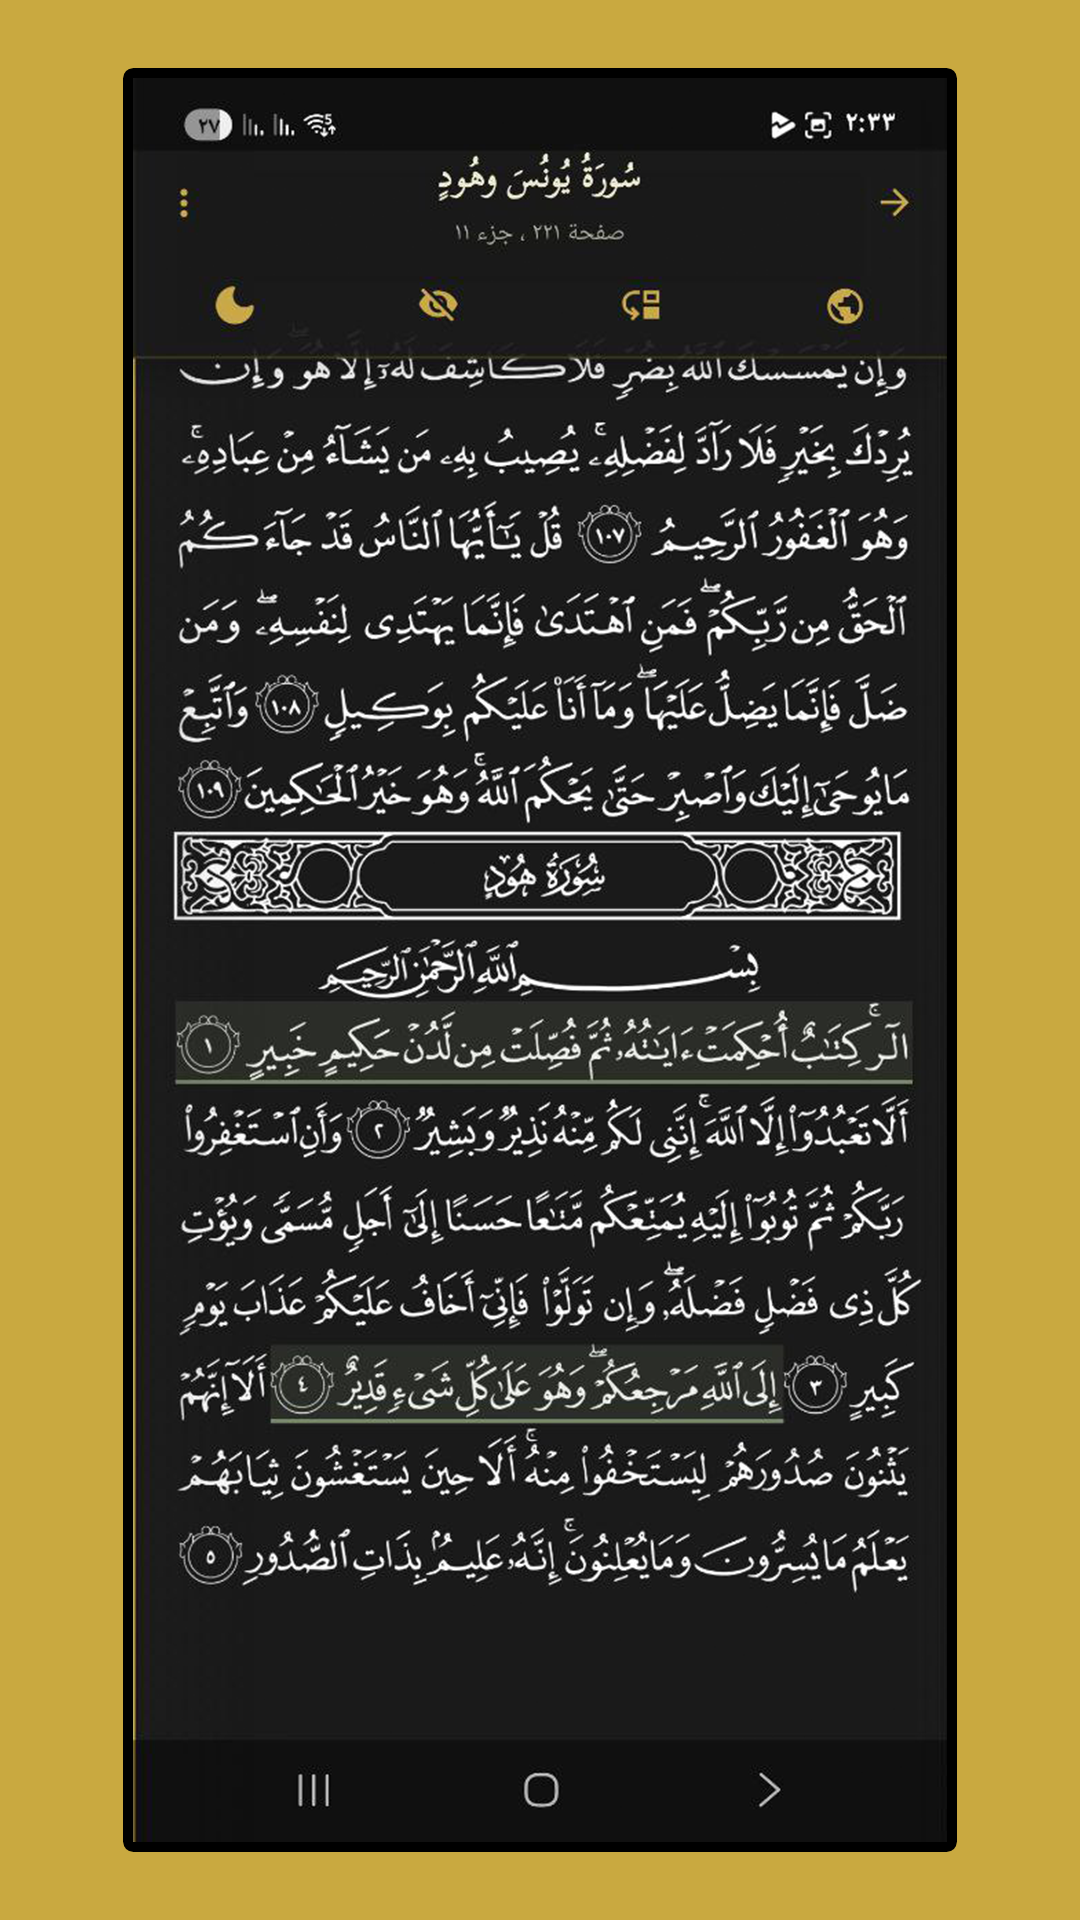 ٢:٣٣
٢٧
5
سُورَةُ يُونُسَ وهُودٍ
صفحة ٢٢١ ، جزء ١١
وَإِن يَمْسَسْكَ ٱللَّهُ بِضُرٍّ فَلَا كَاشِفَ لَهُۥٓ إِلَّا هُوَ ۖ وَإِن
يُرِدْكَ بِخَيْرٍ فَلَا رَآدَّ لِفَضْلِهِۦ ۚ يُصِيبُ بِهِۦ مَن يَشَآءُ مِنْ عِبَادِهِۦ ۚ
وَهُوَ ٱلْغَفُورُ ٱلرَّحِيمُ ١٠٧ قُلْ يَـٰٓأَيُّهَا ٱلنَّاسُ قَدْ جَآءَكُمُ
ٱلْحَقُّ مِن رَّبِّكُمْ ۖ فَمَنِ ٱهْتَدَىٰ فَإِنَّمَا يَهْتَدِى لِنَفْسِهِۦ ۖ وَمَن
ضَلَّ فَإِنَّمَا يَضِلُّ عَلَيْهَا ۖ وَمَآ أَنَا۠ عَلَيْكُم بِوَكِيلٍ ١٠٨ وَٱتَّبِعْ
مَا يُوحَىٰٓ إِلَيْكَ وَٱصْبِرْ حَتَّىٰ يَحْكُمَ ٱللَّهُ ۚ وَهُوَ خَيْرُ ٱلْحَـٰكِمِينَ ١٠٩
سُورَةُ هُودٍ
بِسْمِ ٱللَّهِ ٱلرَّحْمَـٰنِ ٱلرَّحِيمِ
الٓر ۚ كِتَـٰبٌ أُحْكِمَتْ ءَايَـٰتُهُۥ ثُمَّ فُصِّلَتْ مِن لَّدُنْ حَكِيمٍ خَبِيرٍ ١
أَلَّا تَعْبُدُوٓا۟ إِلَّا ٱللَّهَ ۚ إِنَّنِى لَكُم مِّنْهُ نَذِيرٌ وَبَشِيرٌ ٢ وَأَنِ ٱسْتَغْفِرُوا۟
رَبَّكُمْ ثُمَّ تُوبُوٓا۟ إِلَيْهِ يُمَتِّعْكُم مَّتَـٰعًا حَسَنًا إِلَىٰٓ أَجَلٍ مُّسَمًّى وَيُؤْتِ
كُلَّ ذِى فَضْلٍ فَضْلَهُۥ ۖ وَإِن تَوَلَّوْا۟ فَإِنِّىٓ أَخَافُ عَلَيْكُمْ عَذَابَ يَوْمٍ
كَبِيرٍ ٣ إِلَى ٱللَّهِ مَرْجِعُكُمْ ۖ وَهُوَ عَلَىٰ كُلِّ شَىْءٍ قَدِيرٌ ٤ أَلَآ إِنَّهُمْ
يَثْنُونَ صُدُورَهُمْ لِيَسْتَخْفُوا۟ مِنْهُ ۚ أَلَا حِينَ يَسْتَغْشُونَ ثِيَابَهُمْ
يَعْلَمُ مَا يُسِرُّونَ وَمَا يُعْلِنُونَ ۚ إِنَّهُۥ عَلِيمٌۢ بِذَاتِ ٱلصُّدُورِ ٥